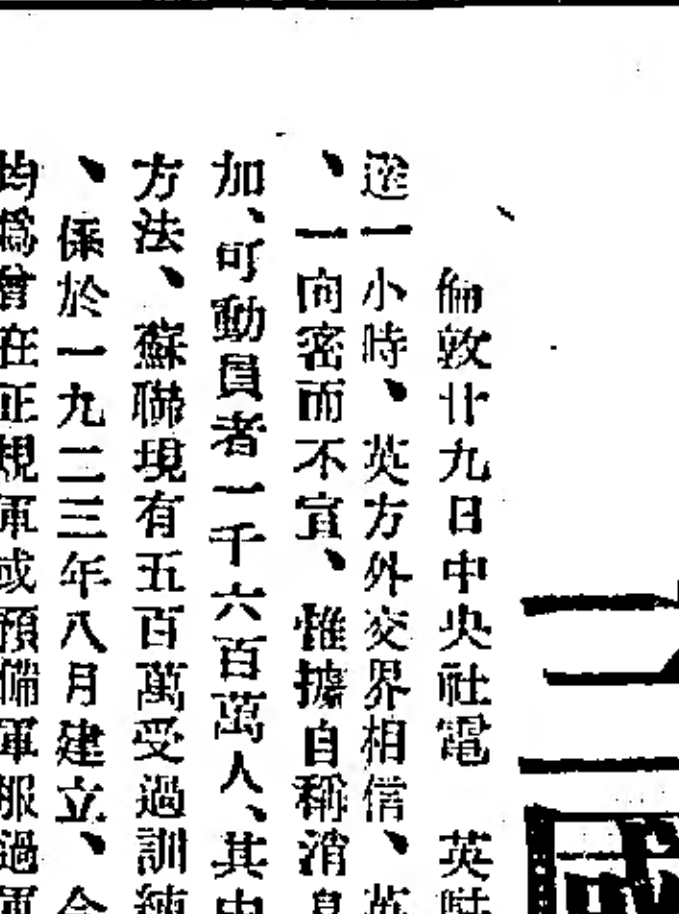 倫敦廿九日中央社電　英駐
達一小時、英方外交界相信、英
、一向密而不宣、惟據自稱消息
加、可動員者一千六百萬人、其中
方法、蘇聯現有五百萬受過訓練
、係於一九二三年八月建立、令
均為曾在正規軍或預備軍服過軍